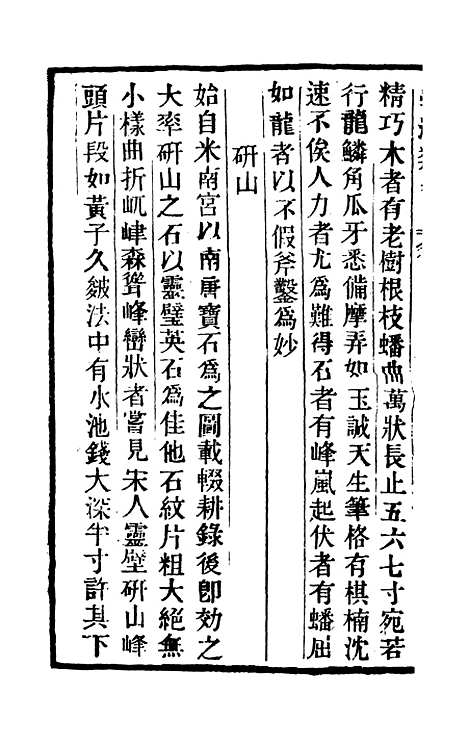 精巧木者有老樹根枝蟠曲萬狀長止五六七寸宛若
行龍鱗角瓜牙悉備摩弄如玉誠天生筆格有棋楠沈
速不俟人力者尤爲難得石者有峰嵐起伏者有蟠屈
如龍者以不假斧鑿爲妙
研山
始自米南宮以南唐寶石爲之圖載輟耕錄後卽効之
大率研山之石以靈璧英石爲佳他石紋片粗大絕無
小樣曲折屼嵂森聳峰巒狀者嘗見宋人靈壁研山峰
頭片段如黃子久皴法中有水池錢大深半寸許其下